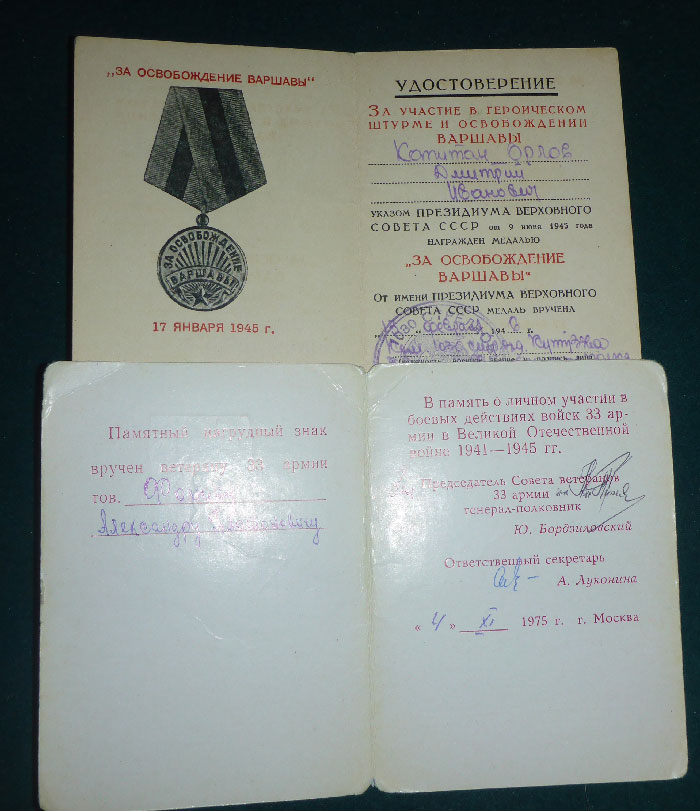 „ЗА ОСВОБОЖДЕНИЕ ВАРШАВЫ“
ЗА ОСВОБОЖДЕНИЕ
ВАРШАВЫ
17 ЯНВАРЯ 1945 г.
УДОСТОВЕРЕНИЕ
ЗА УЧАСТИЕ В ГЕРОИЧЕСКОМ
ШТУРМЕ И ОСВОБОЖДЕНИИ
ВАРШАВЫ
Капитан Орлов
Дмитрий
Иванович
УКАЗОМ ПРЕЗИДИУМА ВЕРХОВНОГО
СОВЕТА СССР от 9 июня 1945 года
НАГРАЖДЕН МЕДАЛЬЮ
„ЗА ОСВОБОЖДЕНИЕ
ВАРШАВЫ“
От имени ПРЕЗИДИУМА ВЕРХОВНОГО
СОВЕТА СССР МЕДАЛЬ ВРУЧЕНА
февраля 194 г.
Памятный нагрудный знак
вручен ветерану 33 армии
тов.
Александру
В память о личном участии в
боевых действиях войск 33 ар-
мии в Великой Отечественной
войне 1941—1945 гг.
Председатель Совета ветеранов
33 армии
генерал-полковник
Ю. Бордзиловский
Ответственный секретарь
А. Луконина
« 4 » XI 1975 г. г. Москва